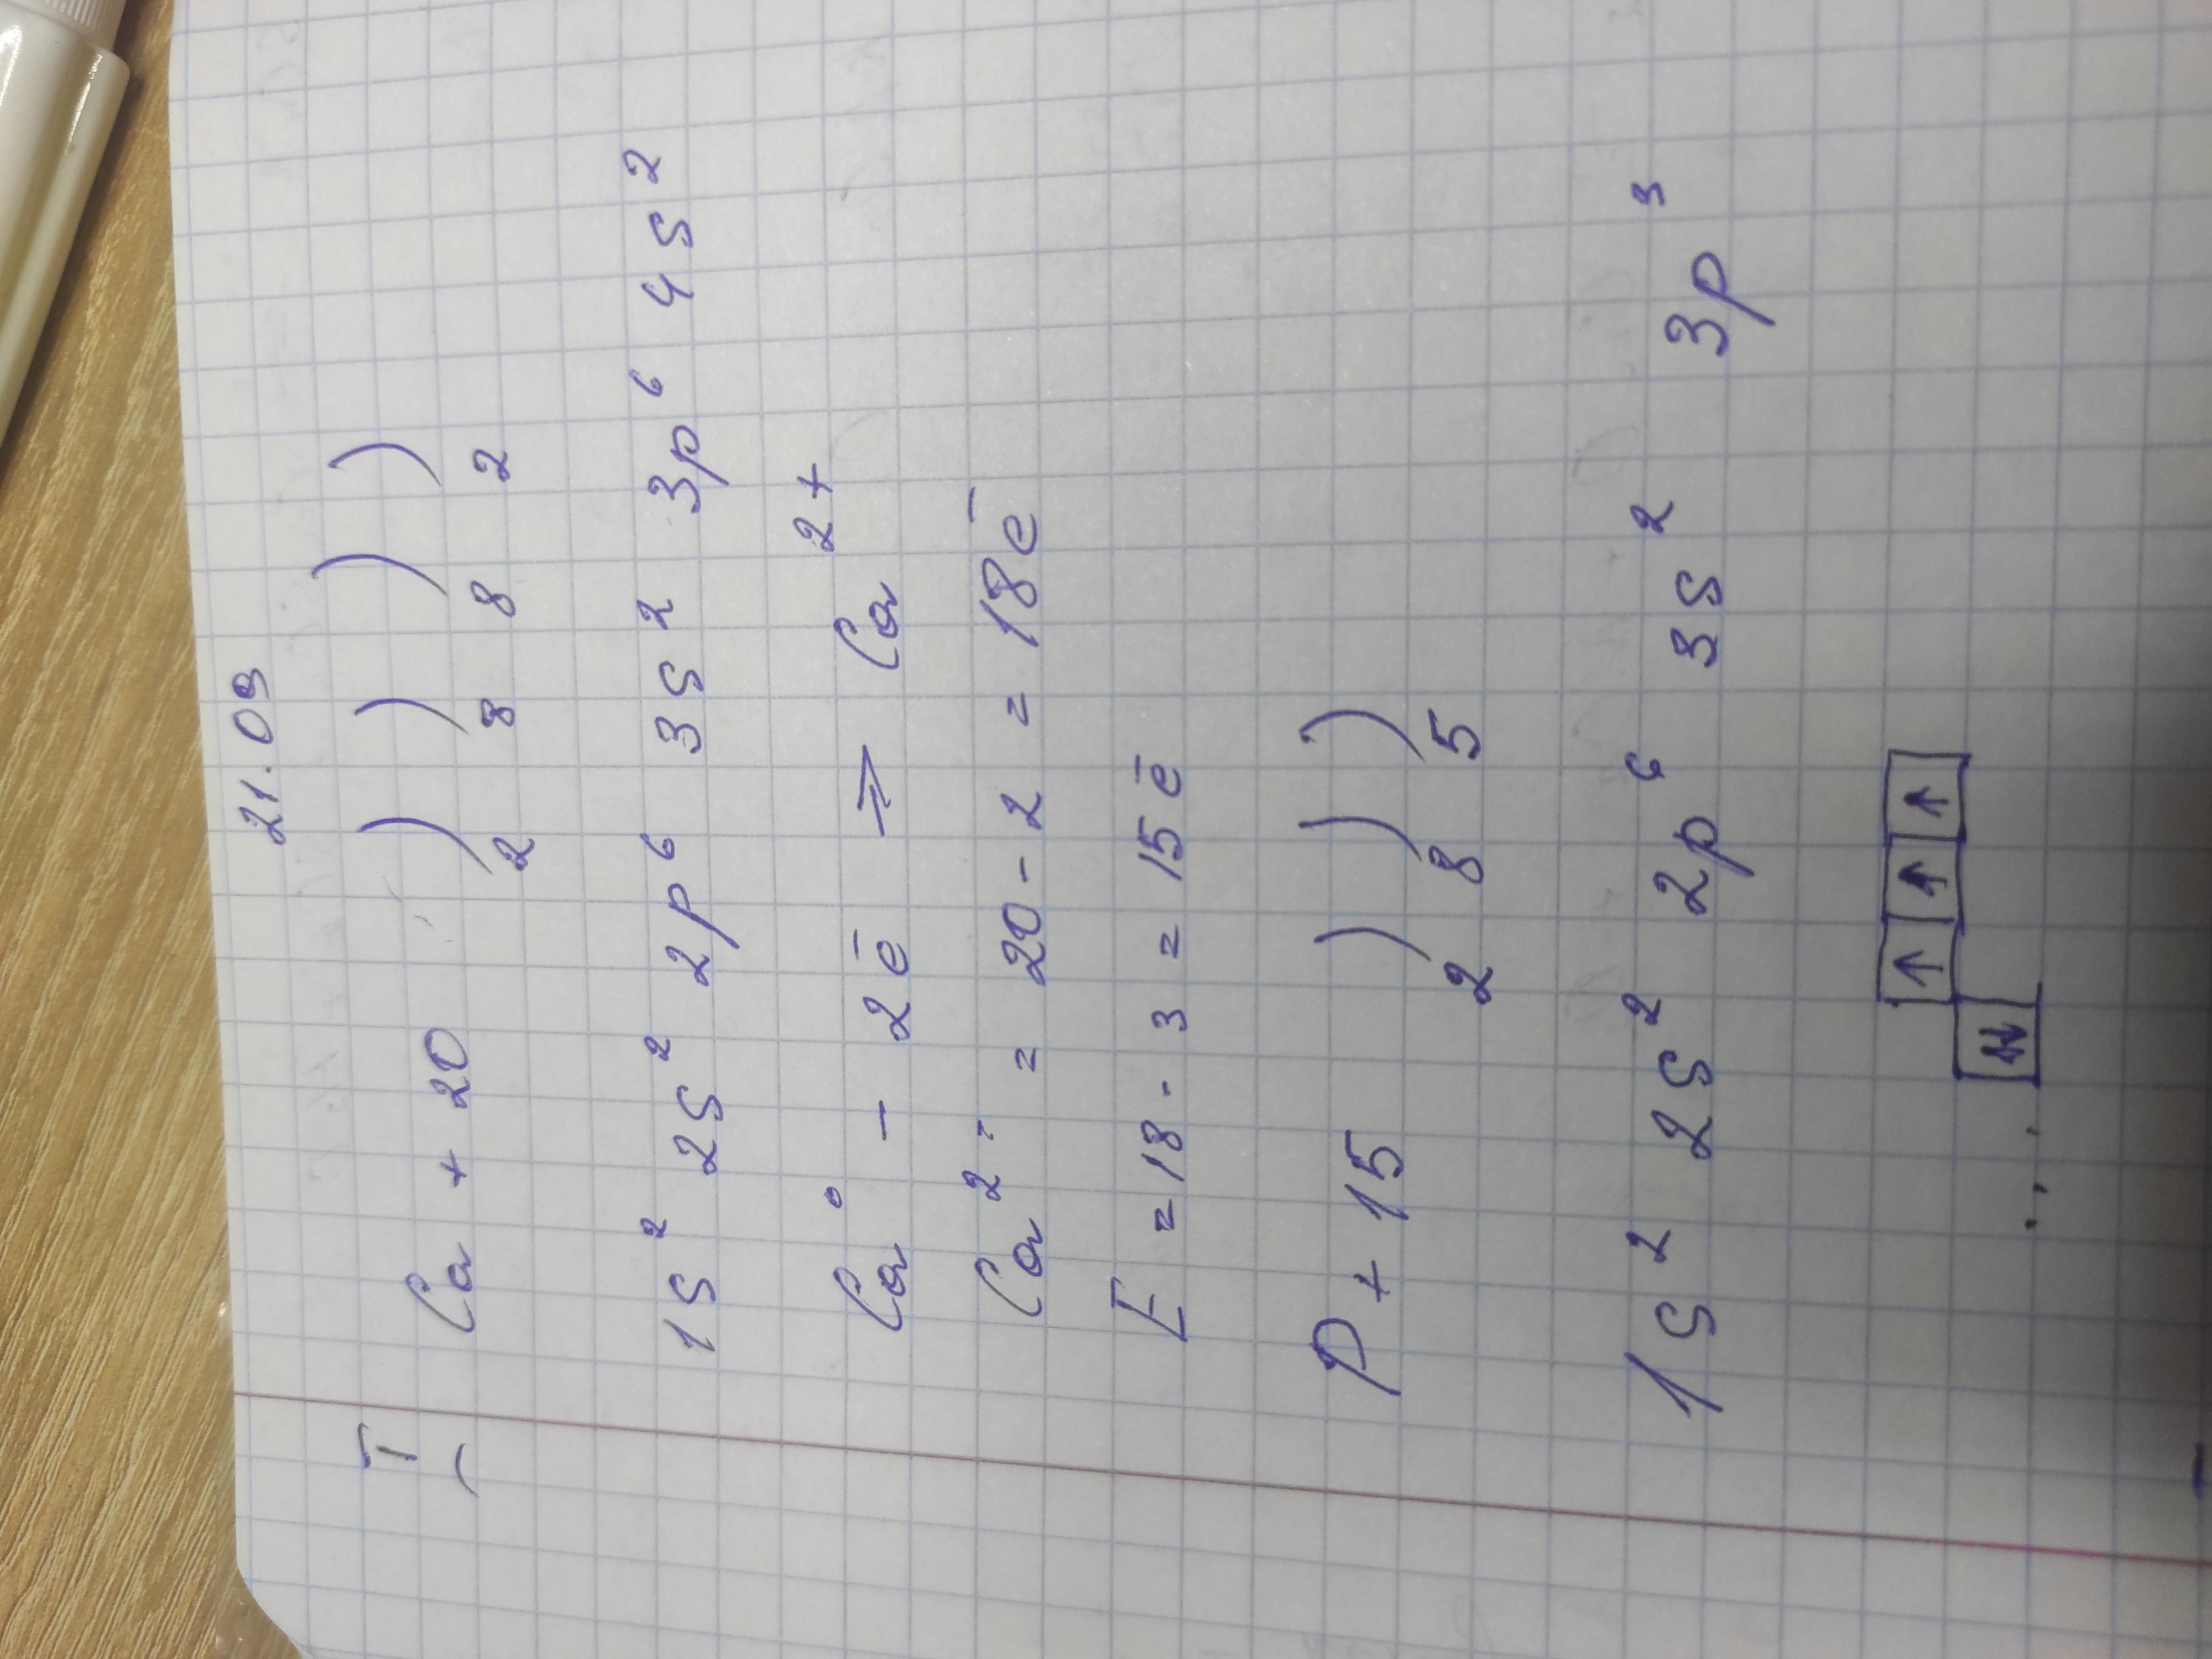 21.09
I
Ca + 20 ) ) ) )
2 8 8 2
1s² 2s² 2p⁶ 3s² 3p⁶ 4s²
Ca⁰ - 2ē → Ca²⁺
Ca² = 20 - 2 = 18ē
E = 18 - 3 = 15ē
P + 15 ) ) )
2 8 5
1s² 2s² 2p⁶ 3s² 3p³
↑ ↑ ↑
... ↑↓